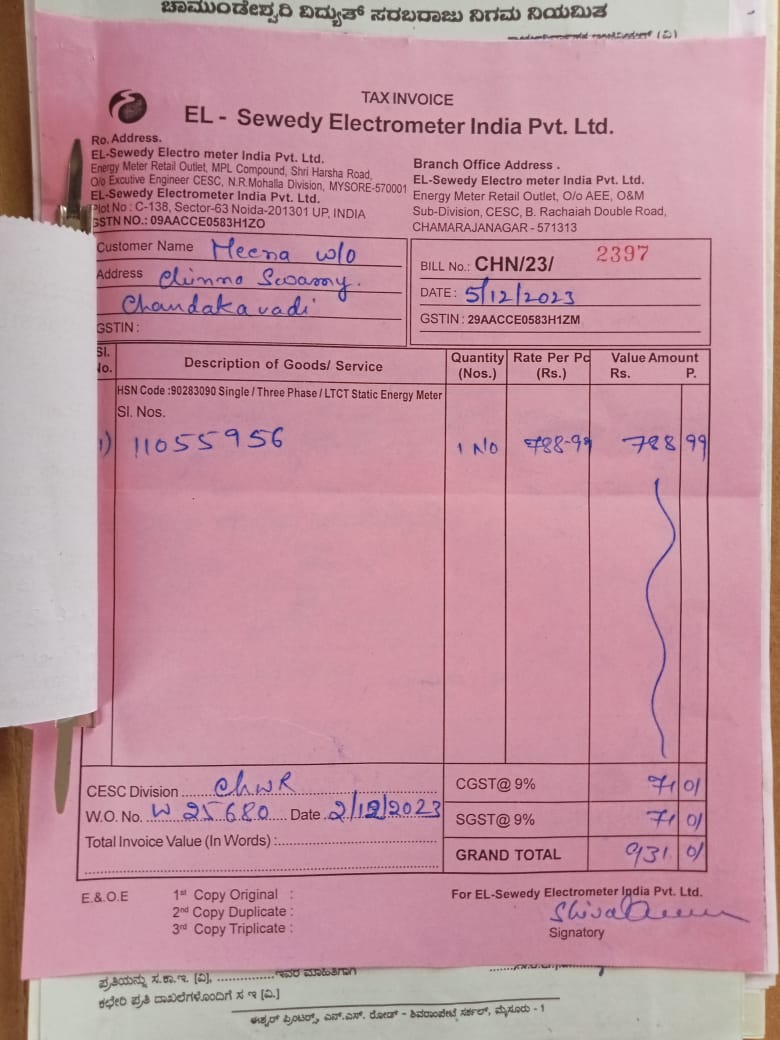 ಚಾಮುಂಡೇಶ್ವರಿ ವಿದ್ಯುತ್ ಸರಬರಾಜು ನಿಗಮ ನಿಯಮಿತ
TAX INVOICE
EL - Sewedy Electrometer India Pvt. Ltd.
Ro. Address.
EL-Sewedy Electro meter India Pvt. Ltd.
Energy Meter Retail Outlet, MPL Compound, Shri Harsha Road,
O/o Excutive Engineer CESC, N.R.Mohalla Division, MYSORE-570001
EL-Sewedy Electrometer India Pvt. Ltd.
Plot No : C-138, Sector-63 Noida-201301 UP, INDIA
GSTN NO.: 09AACCE0583H1ZO
Branch Office Address .
EL-Sewedy Electro meter India Pvt. Ltd.
Energy Meter Retail Outlet, O/o AEE, O&M
Sub-Division, CESC, B. Rachaiah Double Road,
CHAMARAJANAGAR - 571313
Customer Name Meena w/o
Address Chinna Swamy.
Chandakavadi
GSTIN :
BILL No.: CHN/23/ 2397
DATE : 5/12/2023
GSTIN : 29AACCE0583H1ZM
Sl. No. Description of Goods/ Service Quantity (Nos.) Rate Per Pc (Rs.) Value Amount Rs. P.
HSN Code :90283090 Single / Three Phase / LTCT Static Energy Meter
Sl. Nos.
1) 11055956 1 No 788-99 788 99
CESC Division ChNR CGST@ 9% 71 01
W.O. No. W 25680 Date 2/12/2023 SGST@ 9% 71 01
Total Invoice Value (In Words) : GRAND TOTAL 931 01
E.& O.E 1st Copy Original :
2nd Copy Duplicate :
3rd Copy Triplicate :
For EL-Sewedy Electrometer India Pvt. Ltd.
Signatory
ಪ್ರತಿಯನ್ನು ಸ.ಕಾ.ಇ. [ವಿ], ಇವರ ಮಾಹಿತಿಗಾಗಿ
ಕಛೇರಿ ಪ್ರತಿ ದಾಖಲೆಗಳೊಂದಿಗೆ ಸ ಇ [ವಿ.]
ಈಶ್ವರ್ ಪ್ರಿಂಟರ್ಸ್, ಎನ್.ಎಸ್. ರೋಡ್ - ಶಿವರಾಂಪೇಟೆ ಸರ್ಕಲ್, ಮೈಸೂರು - 1